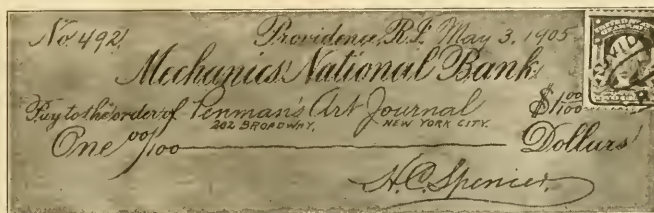 No. 492. Providence, R.I. May 3, 1905
Mechanics National Bank.
Pay to the order of Penman's Art Journal $1 00/100
202 BROADWAY, NEW YORK CITY.
One 00/100 Dollars
H.C. Spencer.